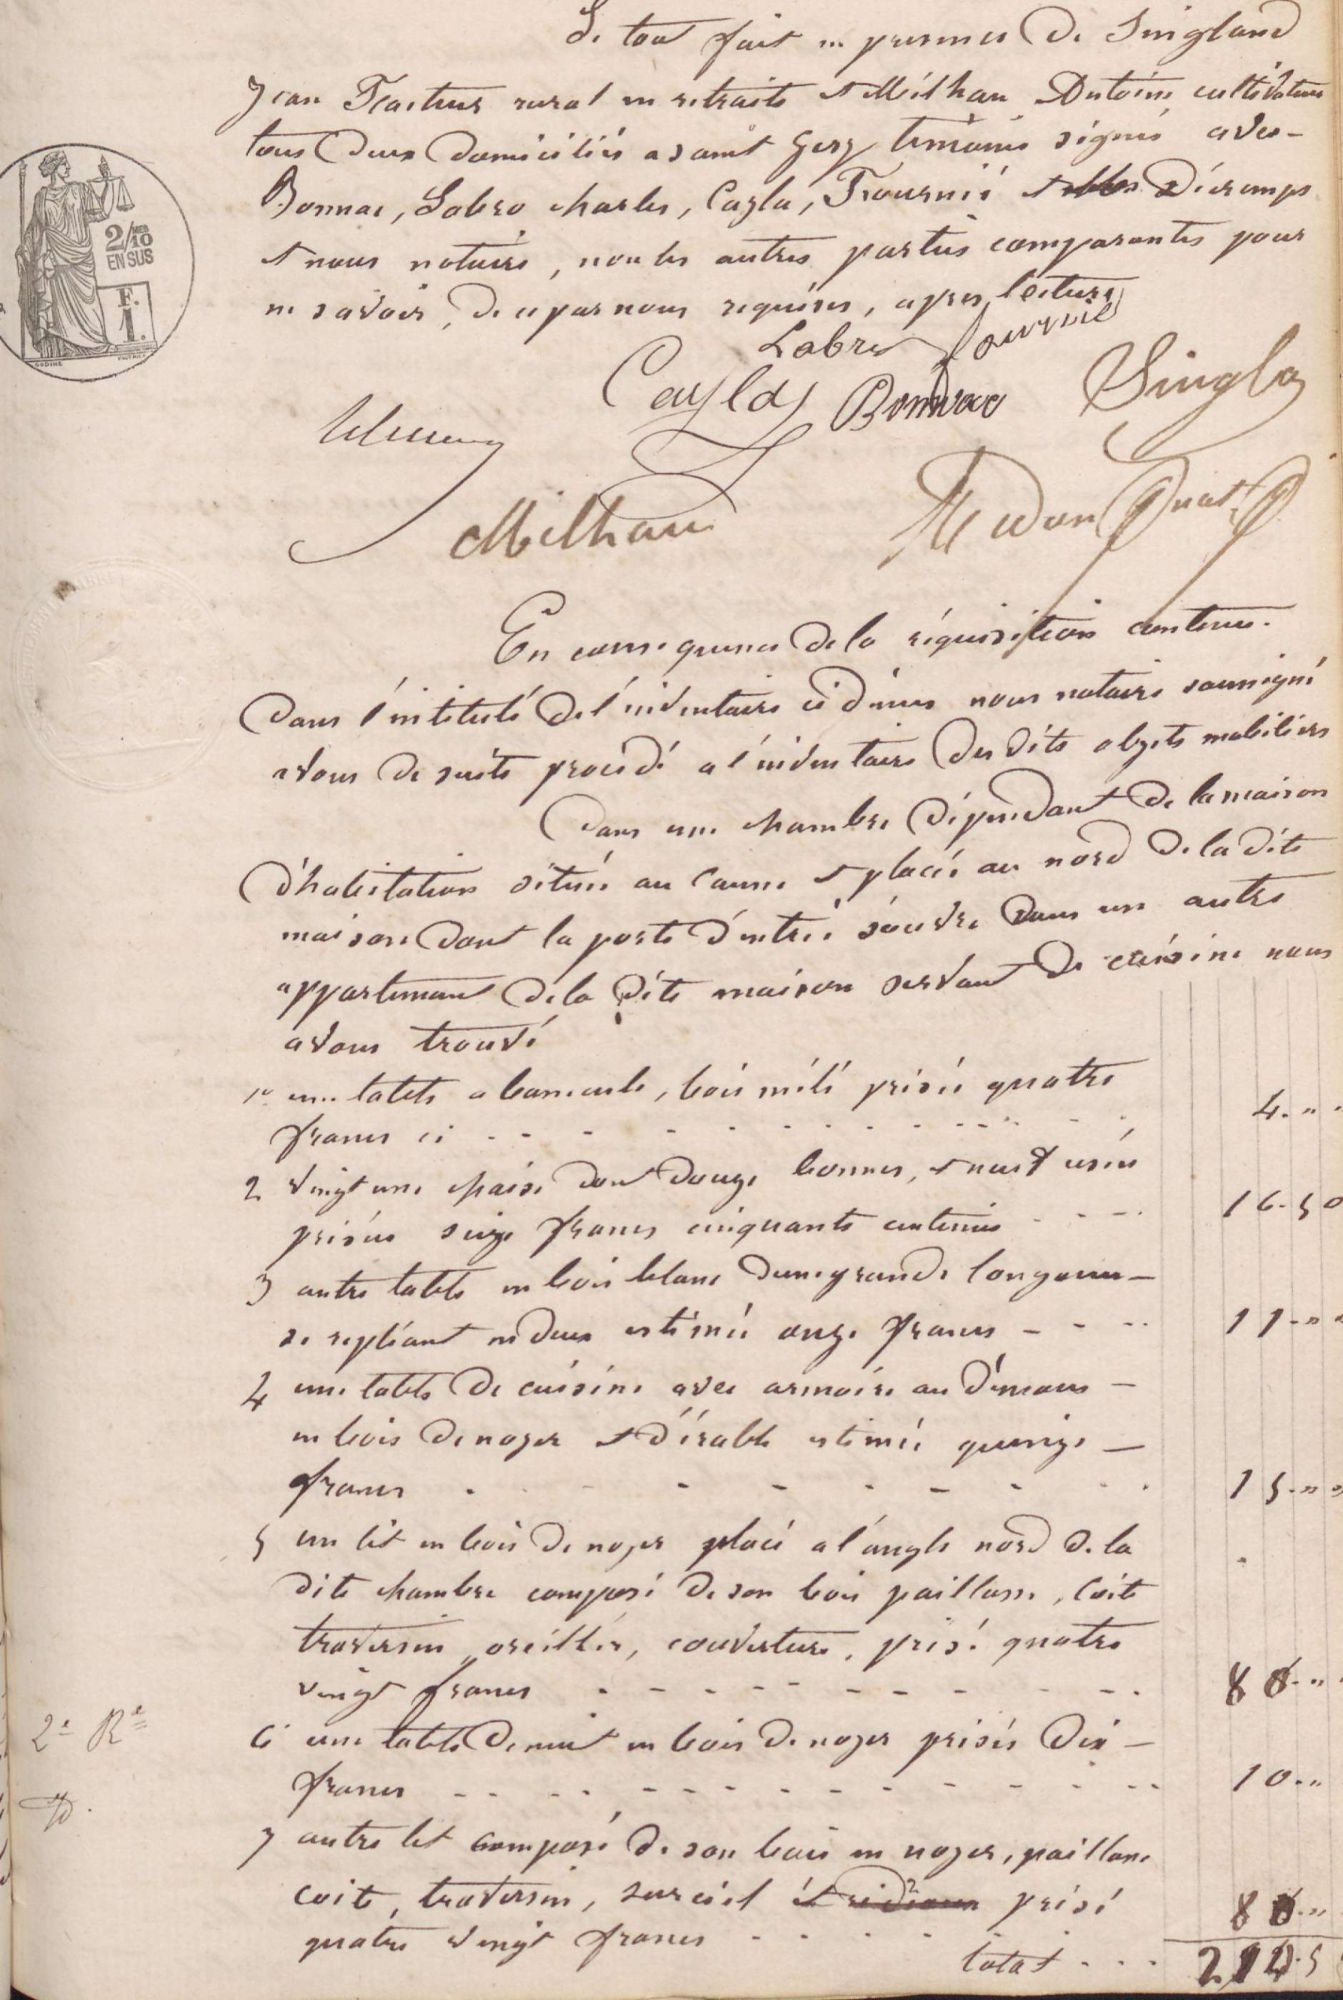 Le tout fait en presence de Singland
Jean Facteur rural en retraite et Milhau Antoine cultivateur
tous deux domiciliés a saint Gery temoins signés avec
Bonnac, Labro charles, Cayla, Fournié et Décremps
et nous notaire, non les autres parties comparantes pour
ne savoir, de ce par nous requises, apres lecture
Labro Fournié
Cayla Bonnac Singla
Milhau
2/10 EN SUS
F. 1.
En consequence de la réquisition contenue
dans l'intitulé de l'inventaire ci dessus nous notaire soussigné
avons de suite procédé a l'inventaire des dits objets mobiliers
Dans une chambre dépendant de la maison
d'habitation située au Causse et placée au nord de la dite
maison dont la porte d'entrée s'ouvre dans un autre
appartement de la dite maison servant de cuisine nous
avons trouvé
1º une table a bascule, bois mêlé prisée quatre
francs ci 4. " "
2 vingt une chaise dont douze bonnes, et neuf usées
prisées seize francs cinquante centimes 16.50
3 autre table en bois blanc d'une grande longueur
se repliant en deux estimée onze francs 11. " "
4 une table de cuisine avec armoire au dessous
en bois de noyer et d'érable estimée quinze
francs 15. " "
5 un lit en bois de noyer placé a l'angle nord de la
dite chambre composé de son bois paillasse, Coite
traversin, oreiller, couverture, prisé quatre
vingt francs 80. "
6 une table de nuit en bois de noyer prisée dix
francs 10. "
7 autre lit composé de son bois en noyer, paillasse
coite, traversin, surciel et prisé
quatre vingt francs 80. "
total
2e Re